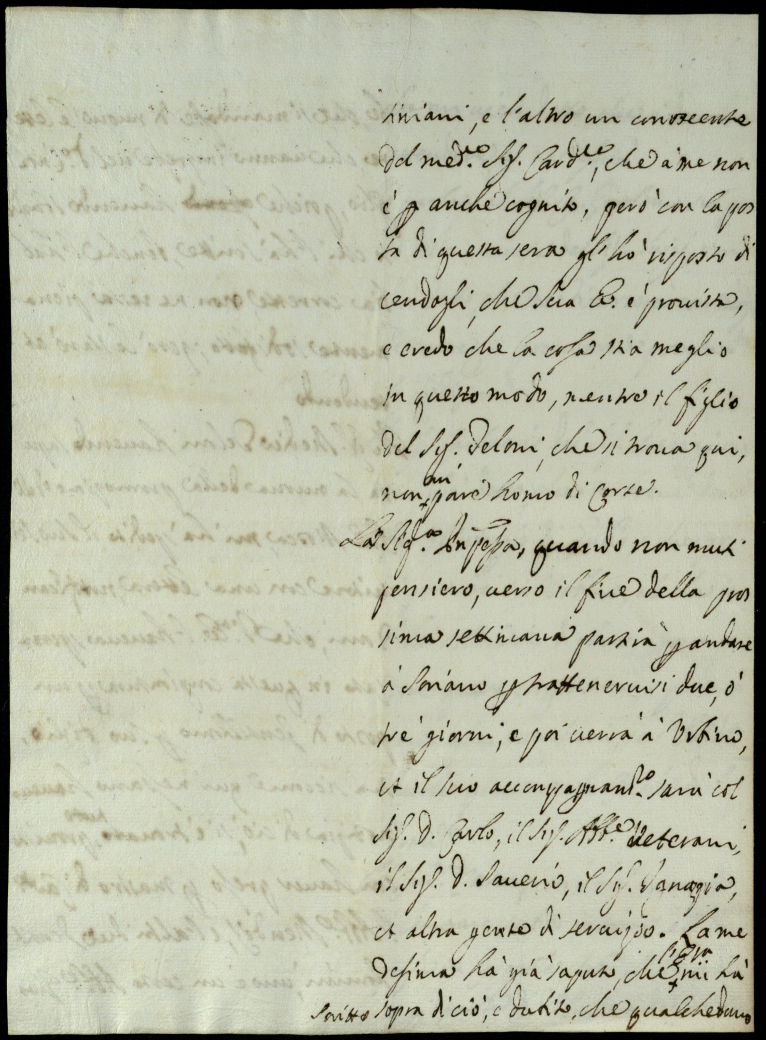 tiniani, e l'altro un conoscente
del med.mo Sig. Card.le, che à me non
è p anche cognito, però con la pos
ta di questa sera gl'hò risposto di
cendogli, che Sua E. è provista,
e credo che la cosa stia meglio
in questo modo, mentre il figlio
del Sig. Deloni, che si trova qui,
non mi pare homo di Corte.
La Sig.ra Prñpessa, quando non muti
pensiero, verso il fine della pros
sima settimana partirà p andare
à Soriano p trattenervisi due, ò
trè giorni, e poi verrà à Urbino,
et il suo accompagnam.to sarà col
Sig. D. Carlo, il Sig. Abb.e Veterani,
il Sig. D. Saverio, il Sig.
et altra gente di servizio. La me
desima hà già saputo, che mi hà
scritto sopra di ciò, e dubito, che qualcheduno